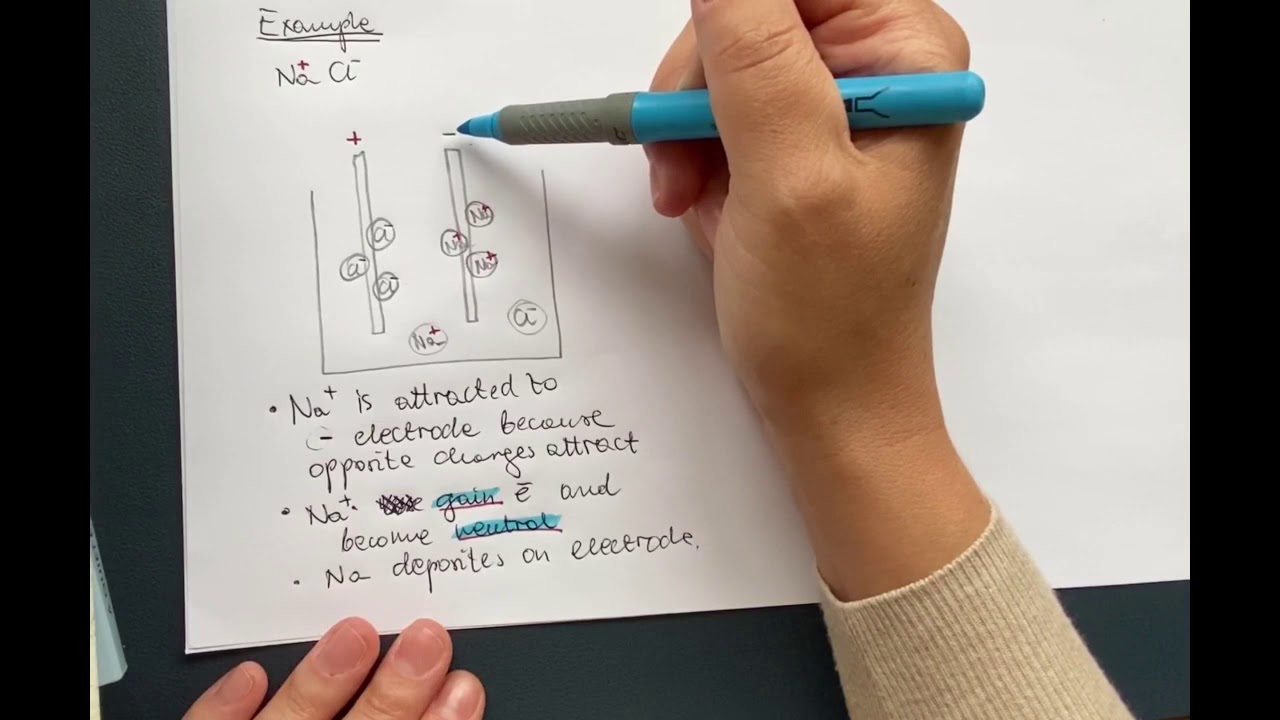 Example
Na⁺ Cl⁻
+ −
Cl⁻ Na⁺
Cl⁻ Na⁺
Cl⁻ Na⁺
Na⁺ Cl⁻
• Na⁺ is attracted to
⊖ electrode because
opposite charges attract
• Na⁺ gain e⁻ and
become neutral
• Na deposites on electrode.